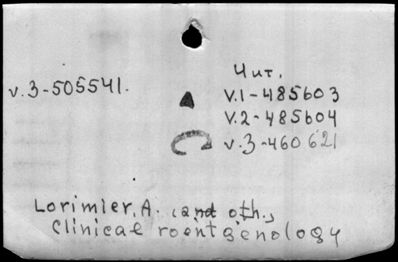 Чит.
v.3-505541.
v.1-485603
v.2-485604
v.3-460621
Lorimier, A. (and oth.,
Clinical roentgenology